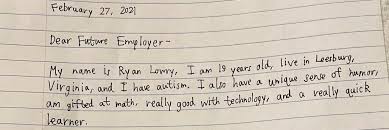 February 27, 2021
Dear Future Employer-
My name is Ryan Lowry, I am 19 years old, live in Leesburg,
Virginia, and I have autism. I also have a unique sense of humor,
am gifted at math, really good with technology, and a really quick
learner.